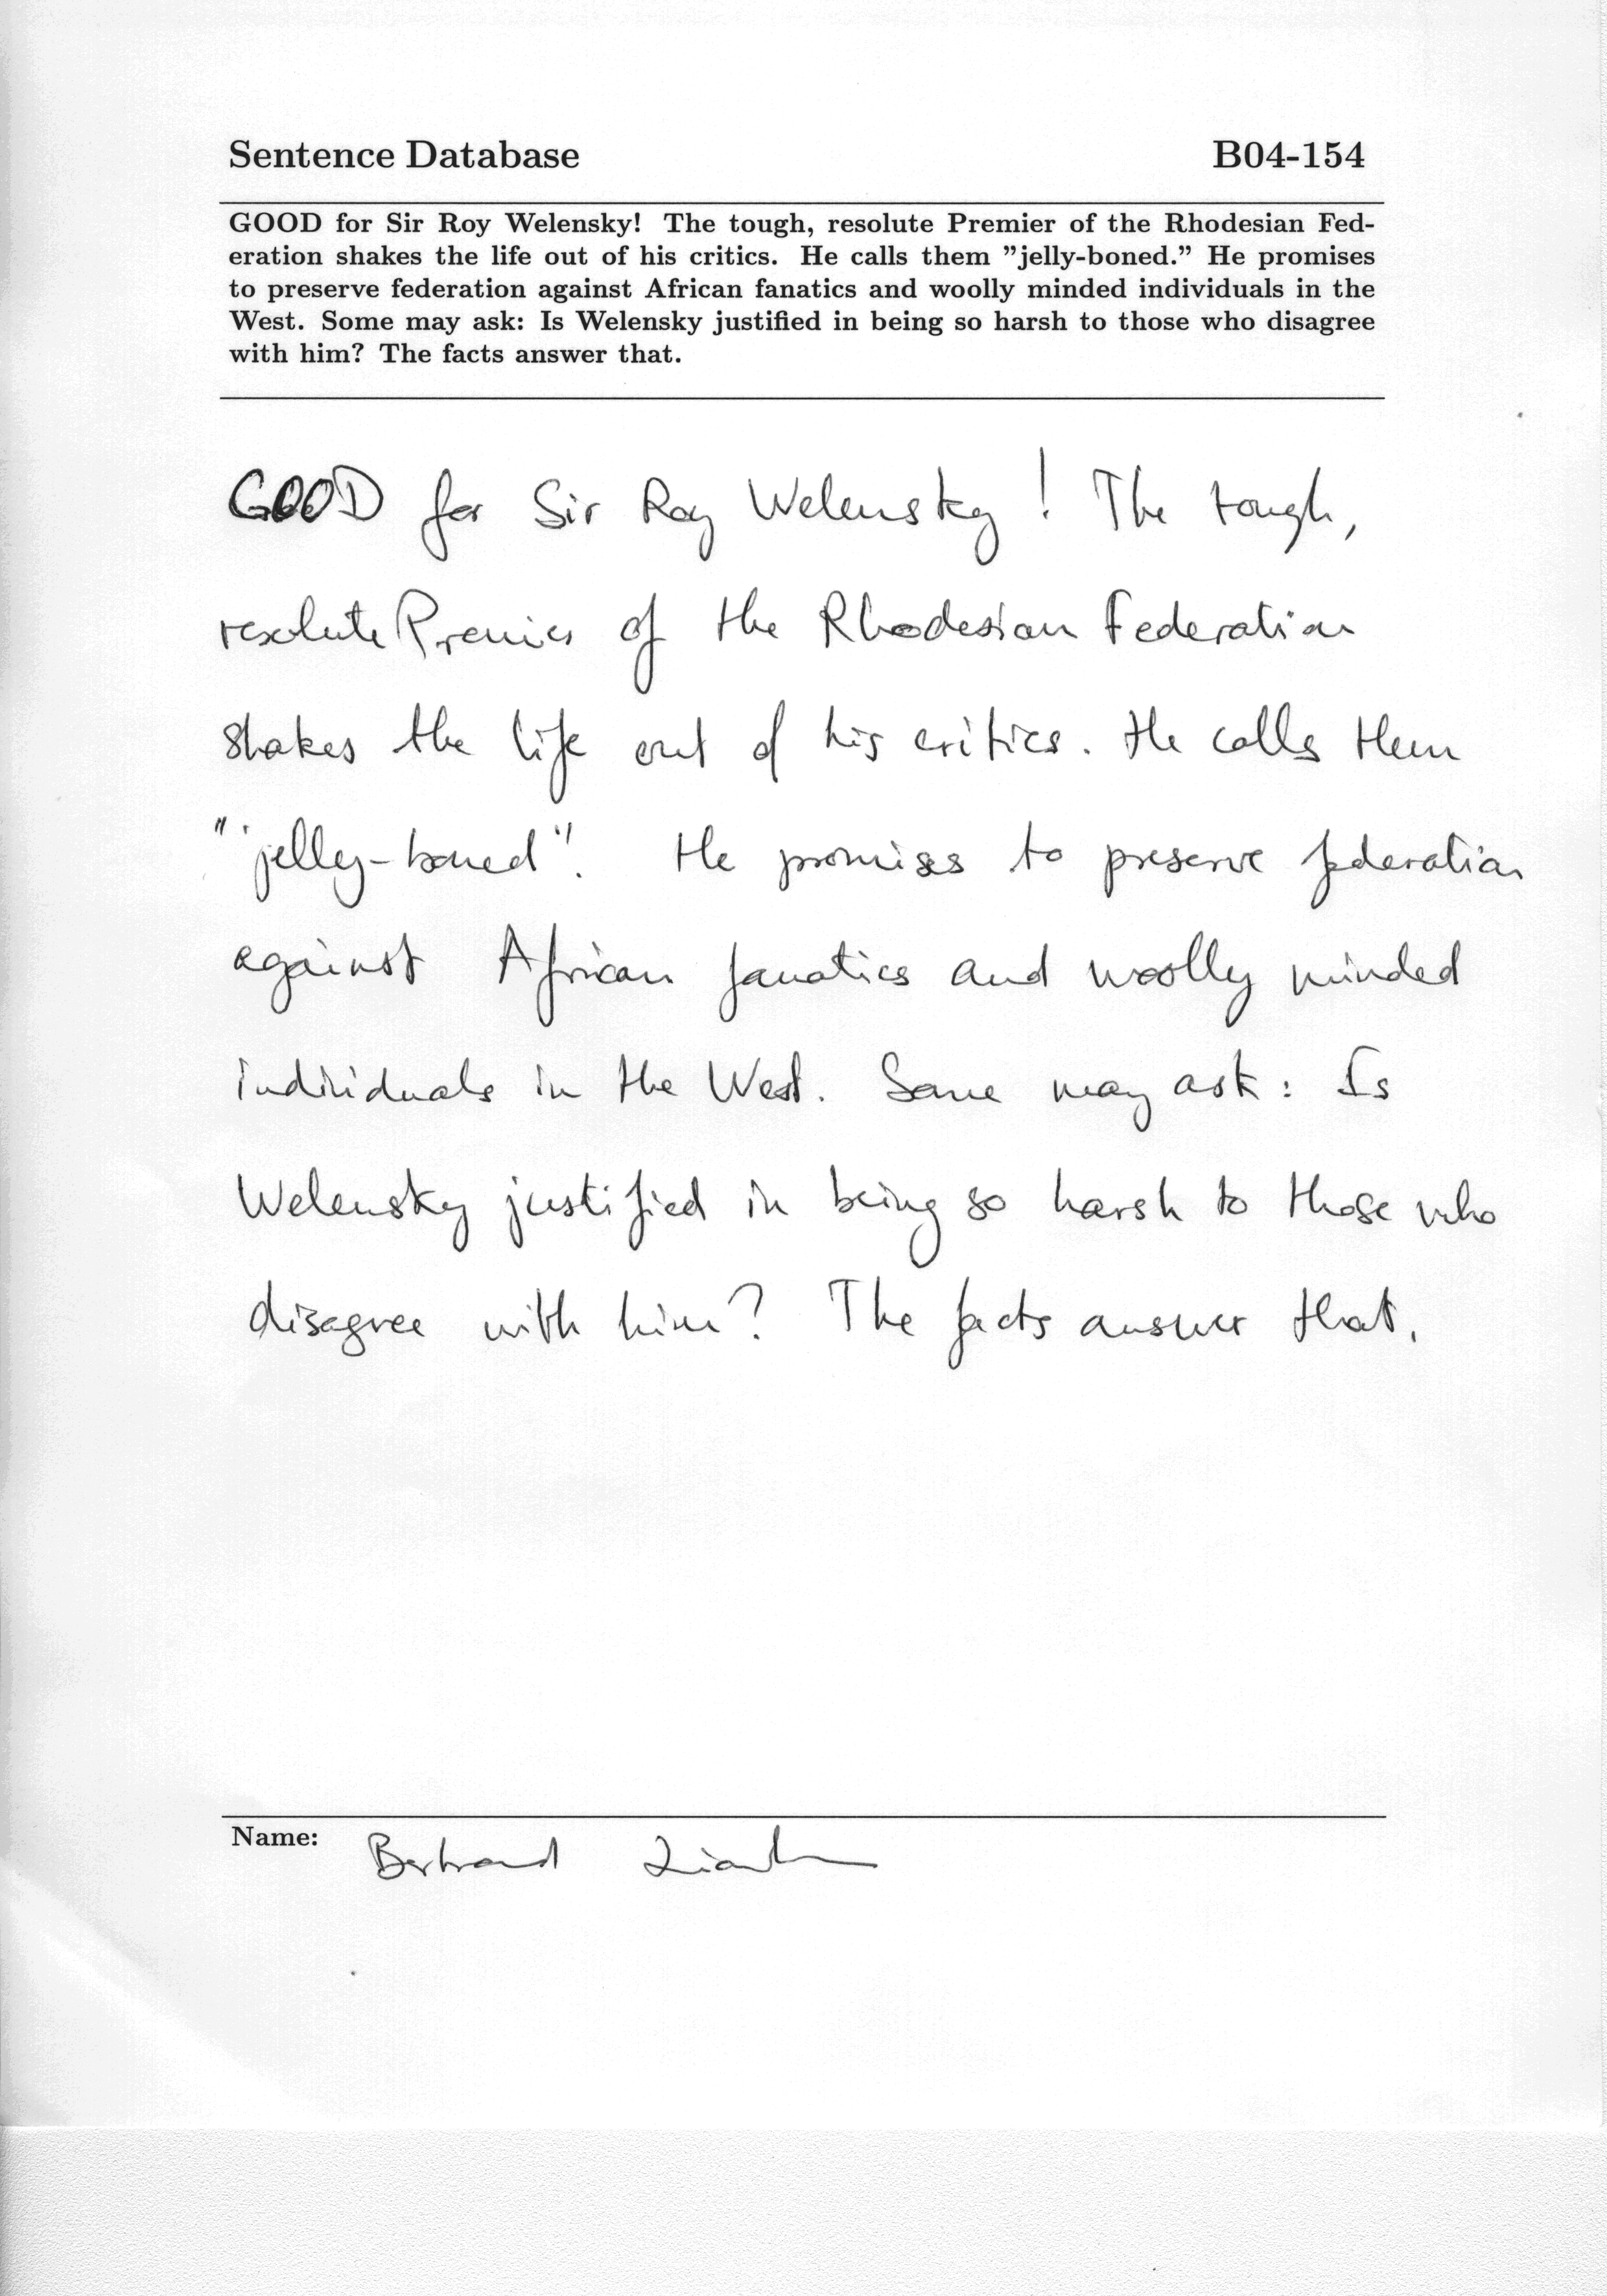 Sentence Database B04-154
GOOD for Sir Roy Welensky! The tough, resolute Premier of the Rhodesian Fed-
eration shakes the life out of his critics. He calls them ”jelly-boned.” He promises
to preserve federation against African fanatics and woolly minded individuals in the
West. Some may ask: Is Welensky justified in being so harsh to those who disagree
with him? The facts answer that.
GOOD for Sir Roy Welensky! The tough,
resolute Premier of the Rhodesian Federation
shakes the life out of his critics. He calls them
"jelly-boned". He promises to preserve federation
against African fanatics and woolly minded
individuals in the West. Some may ask: Is
Welensky justified in being so harsh to those who
disagree with him? The facts answer that.
Name: Bertrand